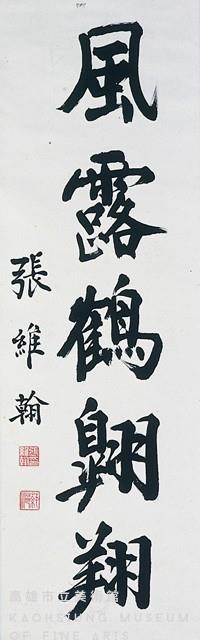 風露鶴翺翔
張維翰
高雄市立美術館
KAOHSIUNG MUSEUM
OF FINE ARTS